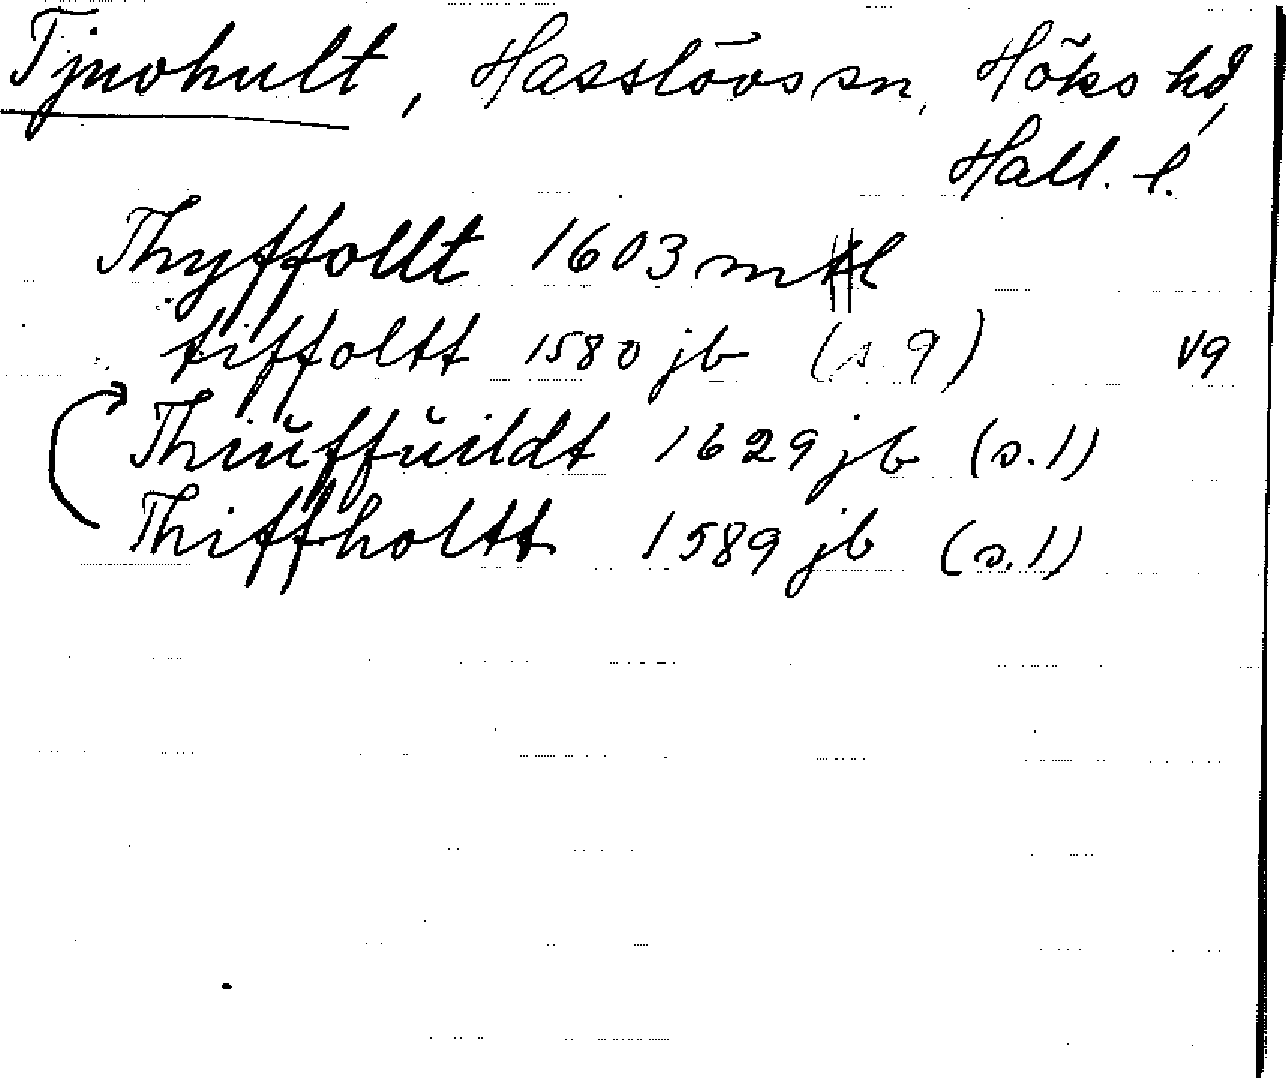 Tjuvhult, Hasslövs sn, Höks hd,
Hall. l.
Thyffollt 1603 mtl
tiffoltt 1580 jb (s. 9) vg
Thiŭffŭildt 1629 jb (s. 1)
Thiffholtt 1589 jb (s. 1)